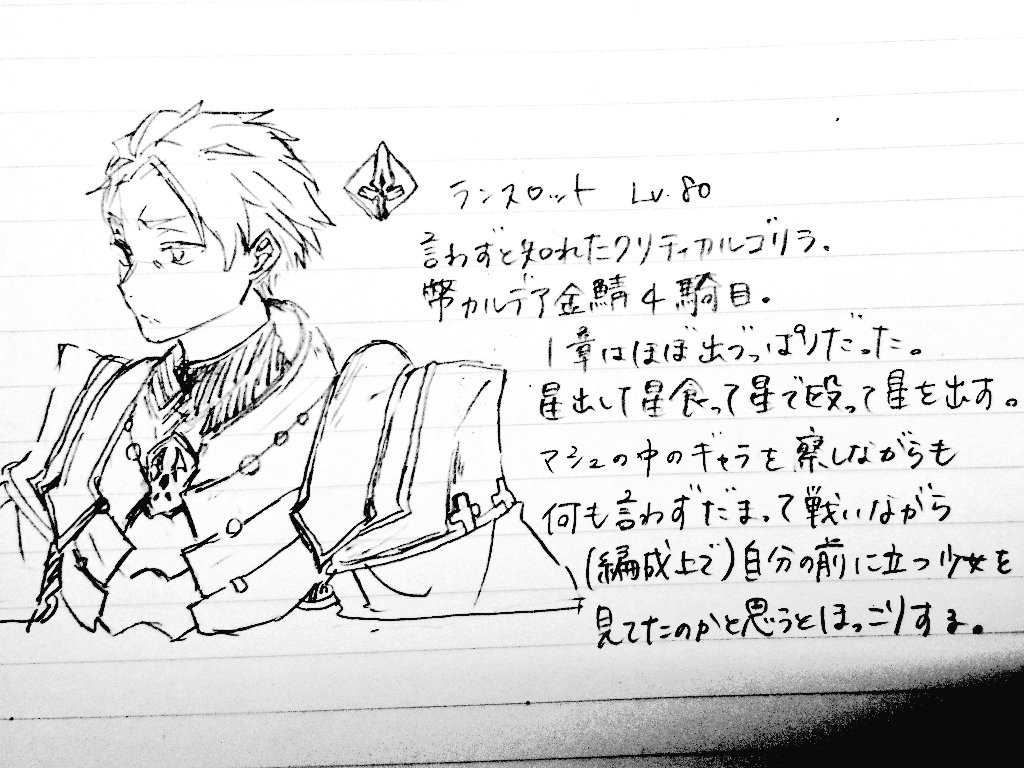 ランスロット Lv.80
言わずと知れたクリティカルゴリラ。
幣カルデア金鯖4騎目。
1章はほぼ出づっぱりだった。
星出して星食って星で殴って星を出す。
マシュの中のギャラを察しながらも
何も言わずだまって戦いながら
(編成上で)自分の前に立つ少女を
見てたのかと思うとほっこりする。